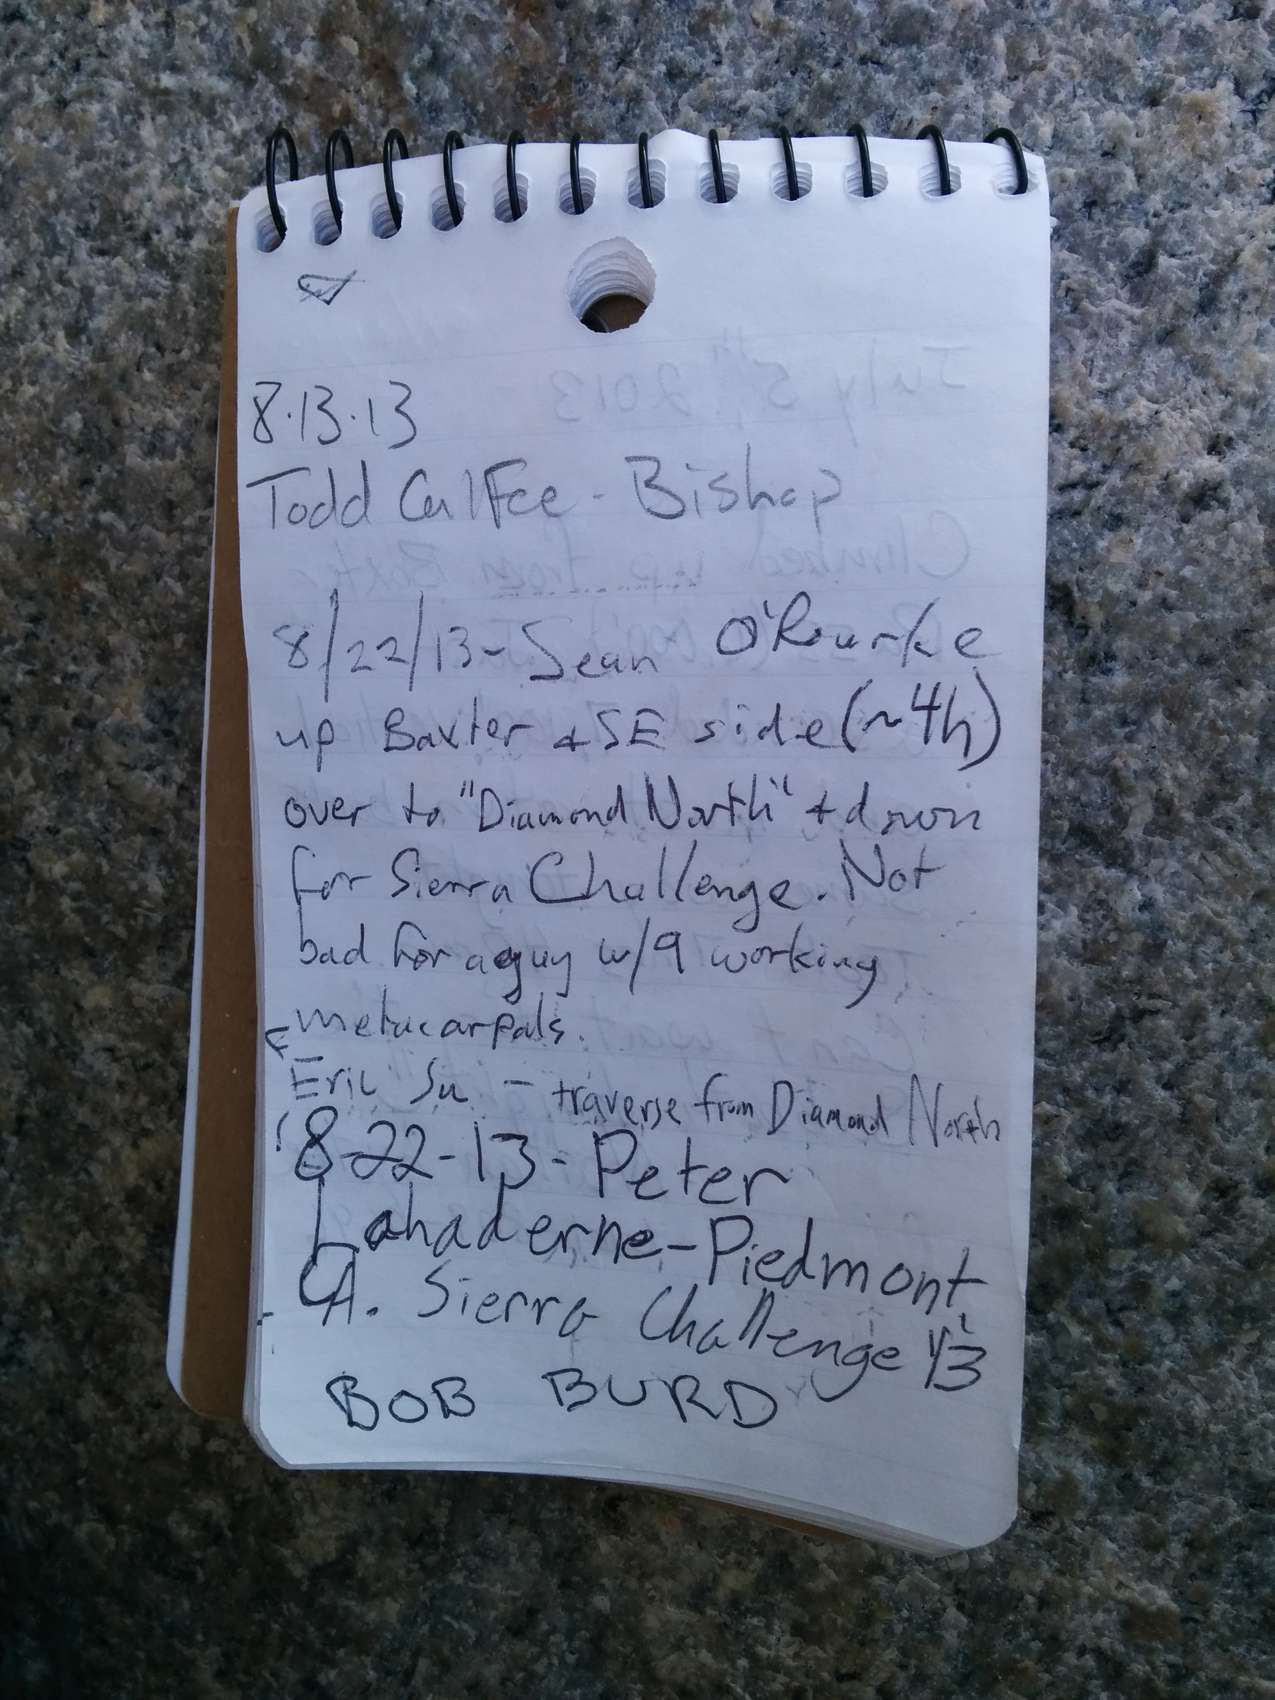 8.13.13
Todd Calfee - Bishop
8/22/13 - Sean O'Rourke
up Baxter + SE side (~4h)
over to "Diamond North" + down
for Sierra Challenge. Not
bad for a guy w/ 9 working
metacarpals.
Eric Su - traverse from Diamond North
8-22-13 - Peter
Lahaderne - Piedmont
CA. Sierra Challenge 13
BOB BURD